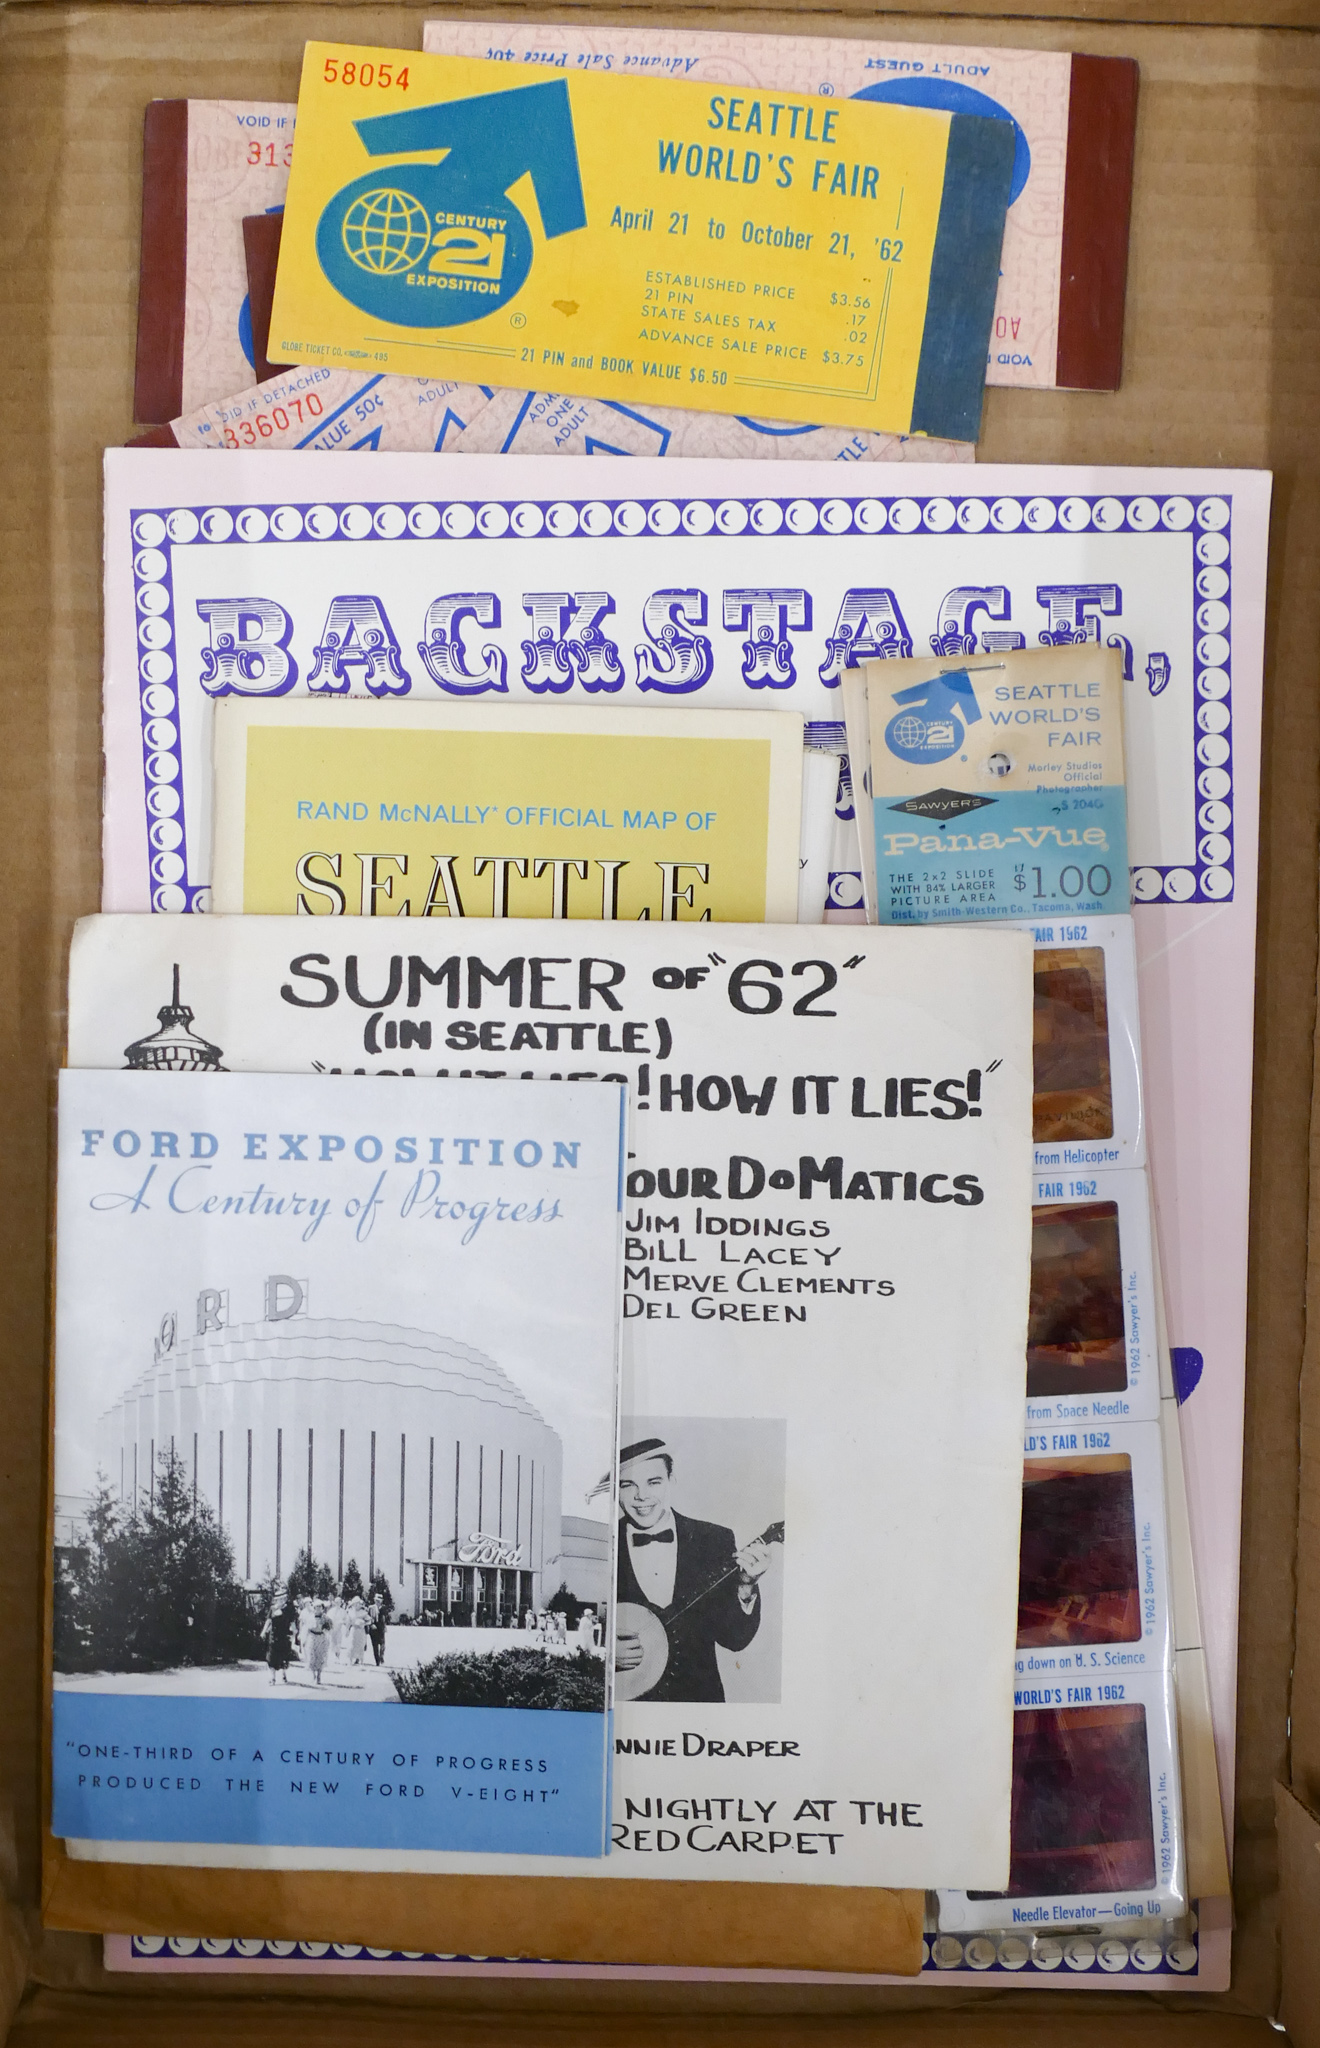 Advance Sale Price 40¢
ADULT GUEST
®
VOID IF
313
58054
SEATTLE
WORLD'S FAIR
April 21 to October 21, '62
CENTURY
21
EXPOSITION
®
ESTABLISHED PRICE $3.56
21 PIN .17
STATE SALES TAX .02
ADVANCE SALE PRICE $3.75
GLOBE TICKET CO. 495
21 PIN and BOOK VALUE $6.50
VOID
336070
ID IF DETACHED
ALUE 50¢
ADULT
ONE
ADULT
BACKSTAGE,
RAND McNALLY* OFFICIAL MAP OF
SEATTLE
y
SEATTLE
WORLD'S
FAIR
CENTURY
21
EXPOSITION
Morley Studios
Official
Photographer
SAWYER'S
S 204G
Pana-Vue
THE 2x2 SLIDE
WITH 84% LARGER
PICTURE AREA
$1.00
Dist. by Smith-Western Co., Tacoma, Wash.
SUMMER OF "62"
(IN SEATTLE)
"HOW IT LIES! HOW IT LIES!"
OUR DO MATICS
JIM IDDINGS
BILL LACEY
MERVE CLEMENTS
DEL GREEN
NNIE DRAPER
NIGHTLY AT THE
RED CARPET
FORD EXPOSITION
A Century of Progress
ORD
Ford
"ONE-THIRD OF A CENTURY OF PROGRESS
PRODUCED THE NEW FORD V-EIGHT"
FAIR 1962
PAVILION
from Helicopter
FAIR 1962
© 1962 Sawyer's Inc.
from Space Needle
LD'S FAIR 1962
© 1962 Sawyer's Inc.
ng down on U. S. Science
WORLD'S FAIR 1962
© 1962 Sawyer's Inc.
Needle Elevator—Going Up